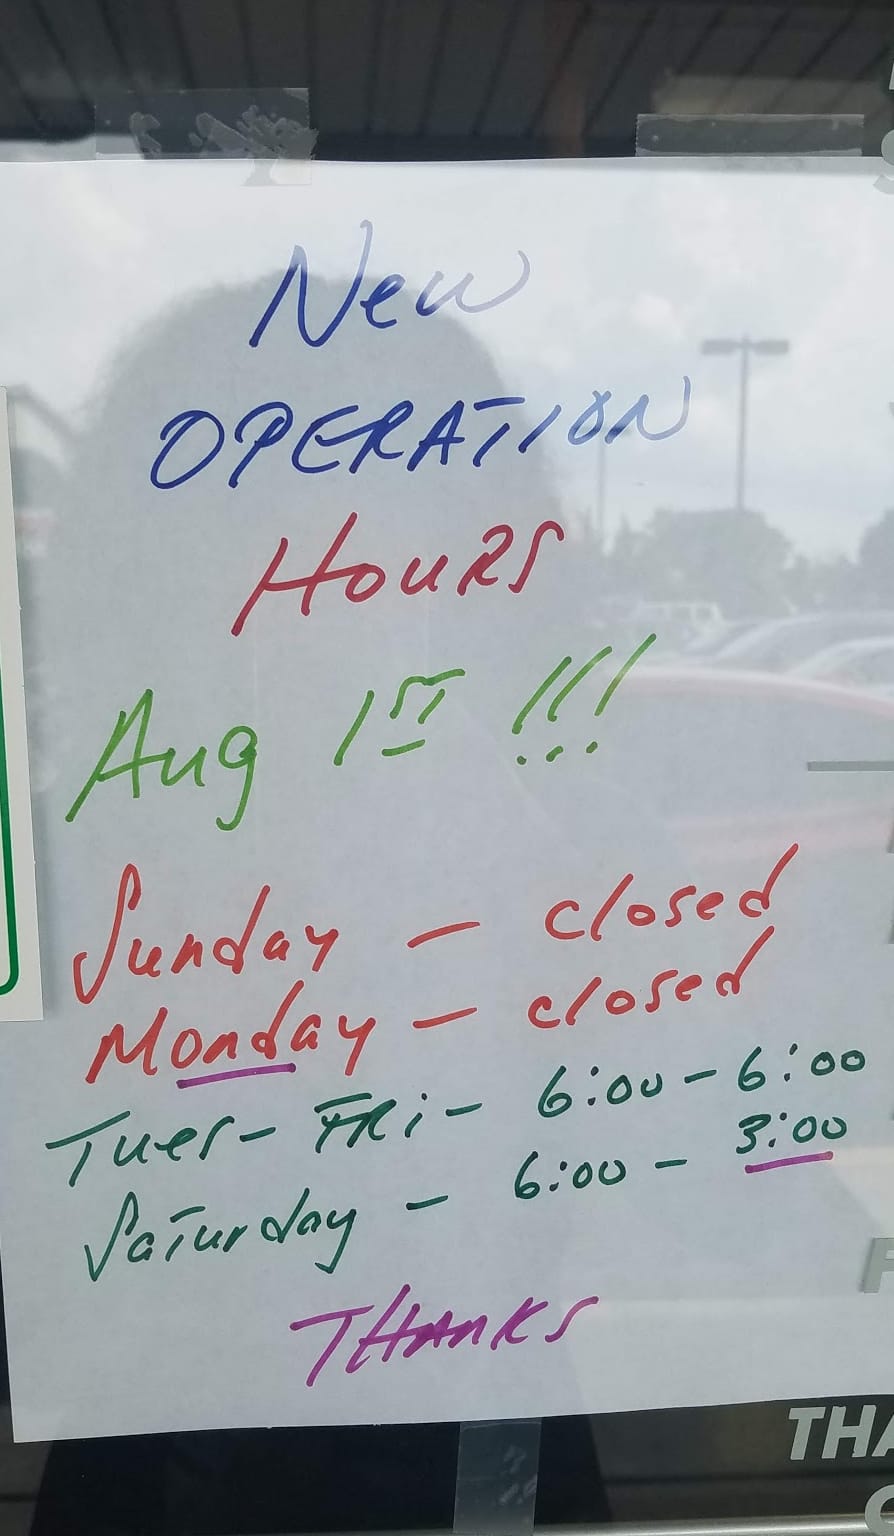 New
OPERATION
HOURS
Aug 1ST !!!
Sunday - closed
Monday - closed
Tues - FRi - 6:00 - 6:00
Saturday - 6:00 - 3:00
THANKS
THA